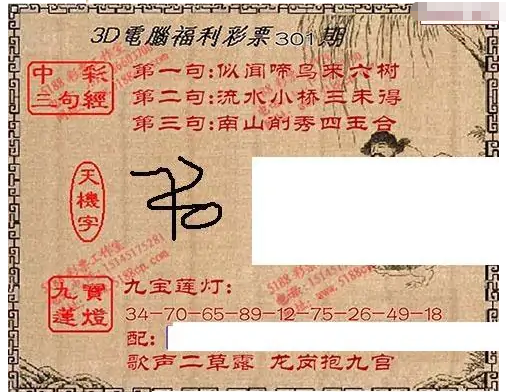 3D電腦福利彩票301期
中彩
三句經
第一句:似闻啼鸟来六树
第二句:流水小桥三未得
第三句:南山削秀四玉合
天機字
九寶
蓮燈
九宝莲灯:
34-70-65-89-12-75-26-49-18
配:
歌声二草露 龙岗抱九宫